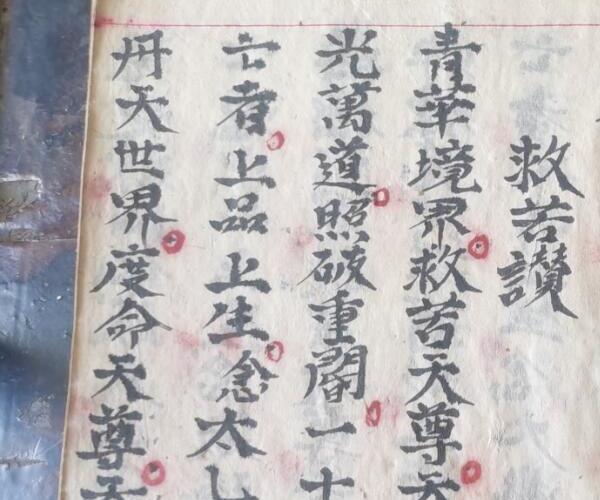 救苦讚
青華境界救苦天尊
光萬道照破重闇一十
亡者上品上生念太乙
丹天世界度命天尊